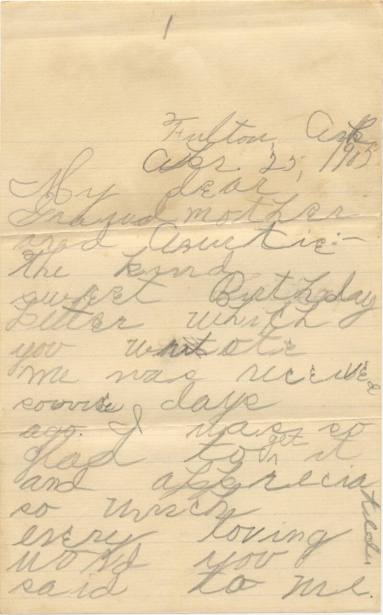 1
Fulton, Ark
Apr 25, 1915
My dear
Grandmother
and Auntie:-
the kind
sweet Birthday
Letter which
you wrote
me was received
some days
ago. I was so
glad to get it
and appreciated
so much
every loving
word you
said to me.